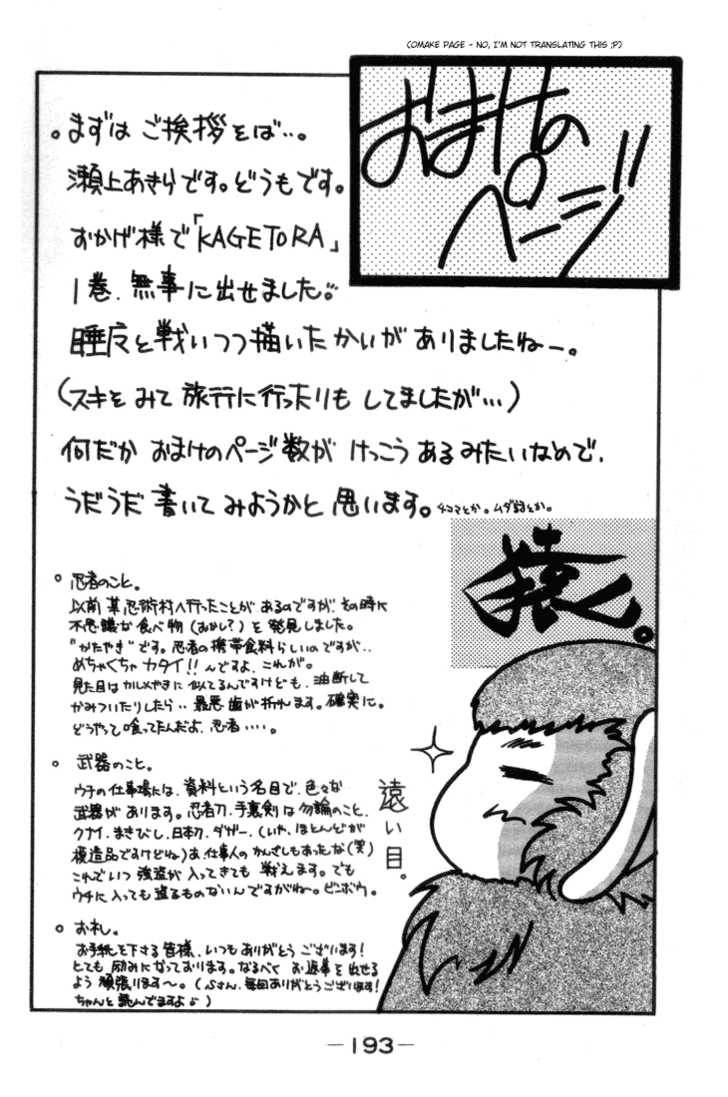 (OMAKE PAGE - NO, I'M NOT TRANSLATING THIS ;P)
おまけの
ページ!!
。まずは ご挨拶をば…。
瀬上あきらです。どうもです。
おかげ様で「KAGETORA」
1巻、無事に出せました。
睡魔と戦いつつ描いたかいが ありましたねー。
(スキをみて 旅行に行ったりも してましたが…)
何だか おまけのページ数が けっこう あるみたいなので、
うだうだ 書いて みようかと 思います。4コマとか。ムダ話とか。
猿。
遠い目。
。忍者のこと。
以前 某忍術村へ行ったことが あるのですが、その時に
不思議な食べ物(おかし?)を 発見しました。
"かたやき"です。忍者の携帯食料らしいのですが‥
めちゃくちゃ カタイ!!んですよ、これが。
見た目はカルメやきに似てるんですけども、油断して
かみついたりしたら‥ 最悪 歯が折れます。確実に。
どうやって喰ってたんだよ、忍者‥‥。
。武器のこと。
ウチの仕事場には、資料という名目で、色々な
武器が あります。忍者刀、手裏剣は勿論のこと、
クナイ、まきびし、日本刀、ダガー、(いや、ほとんどが
模造品ですけどね)あ、仕事人の かんざしもあったな(笑)
これでいつ 強盗が入ってきても 戦えます。でも
ウチに入っても盗るものないんですがねー。ビンボウ。
。お礼。
お手紙を下さる皆様、いつもありがとうございます!
とても 励みになっております。なるべく お返事を出せる
よう 頑張ります〜。(さん、毎回ありがとうございます!
ちゃんと読んでますよ)
－193－